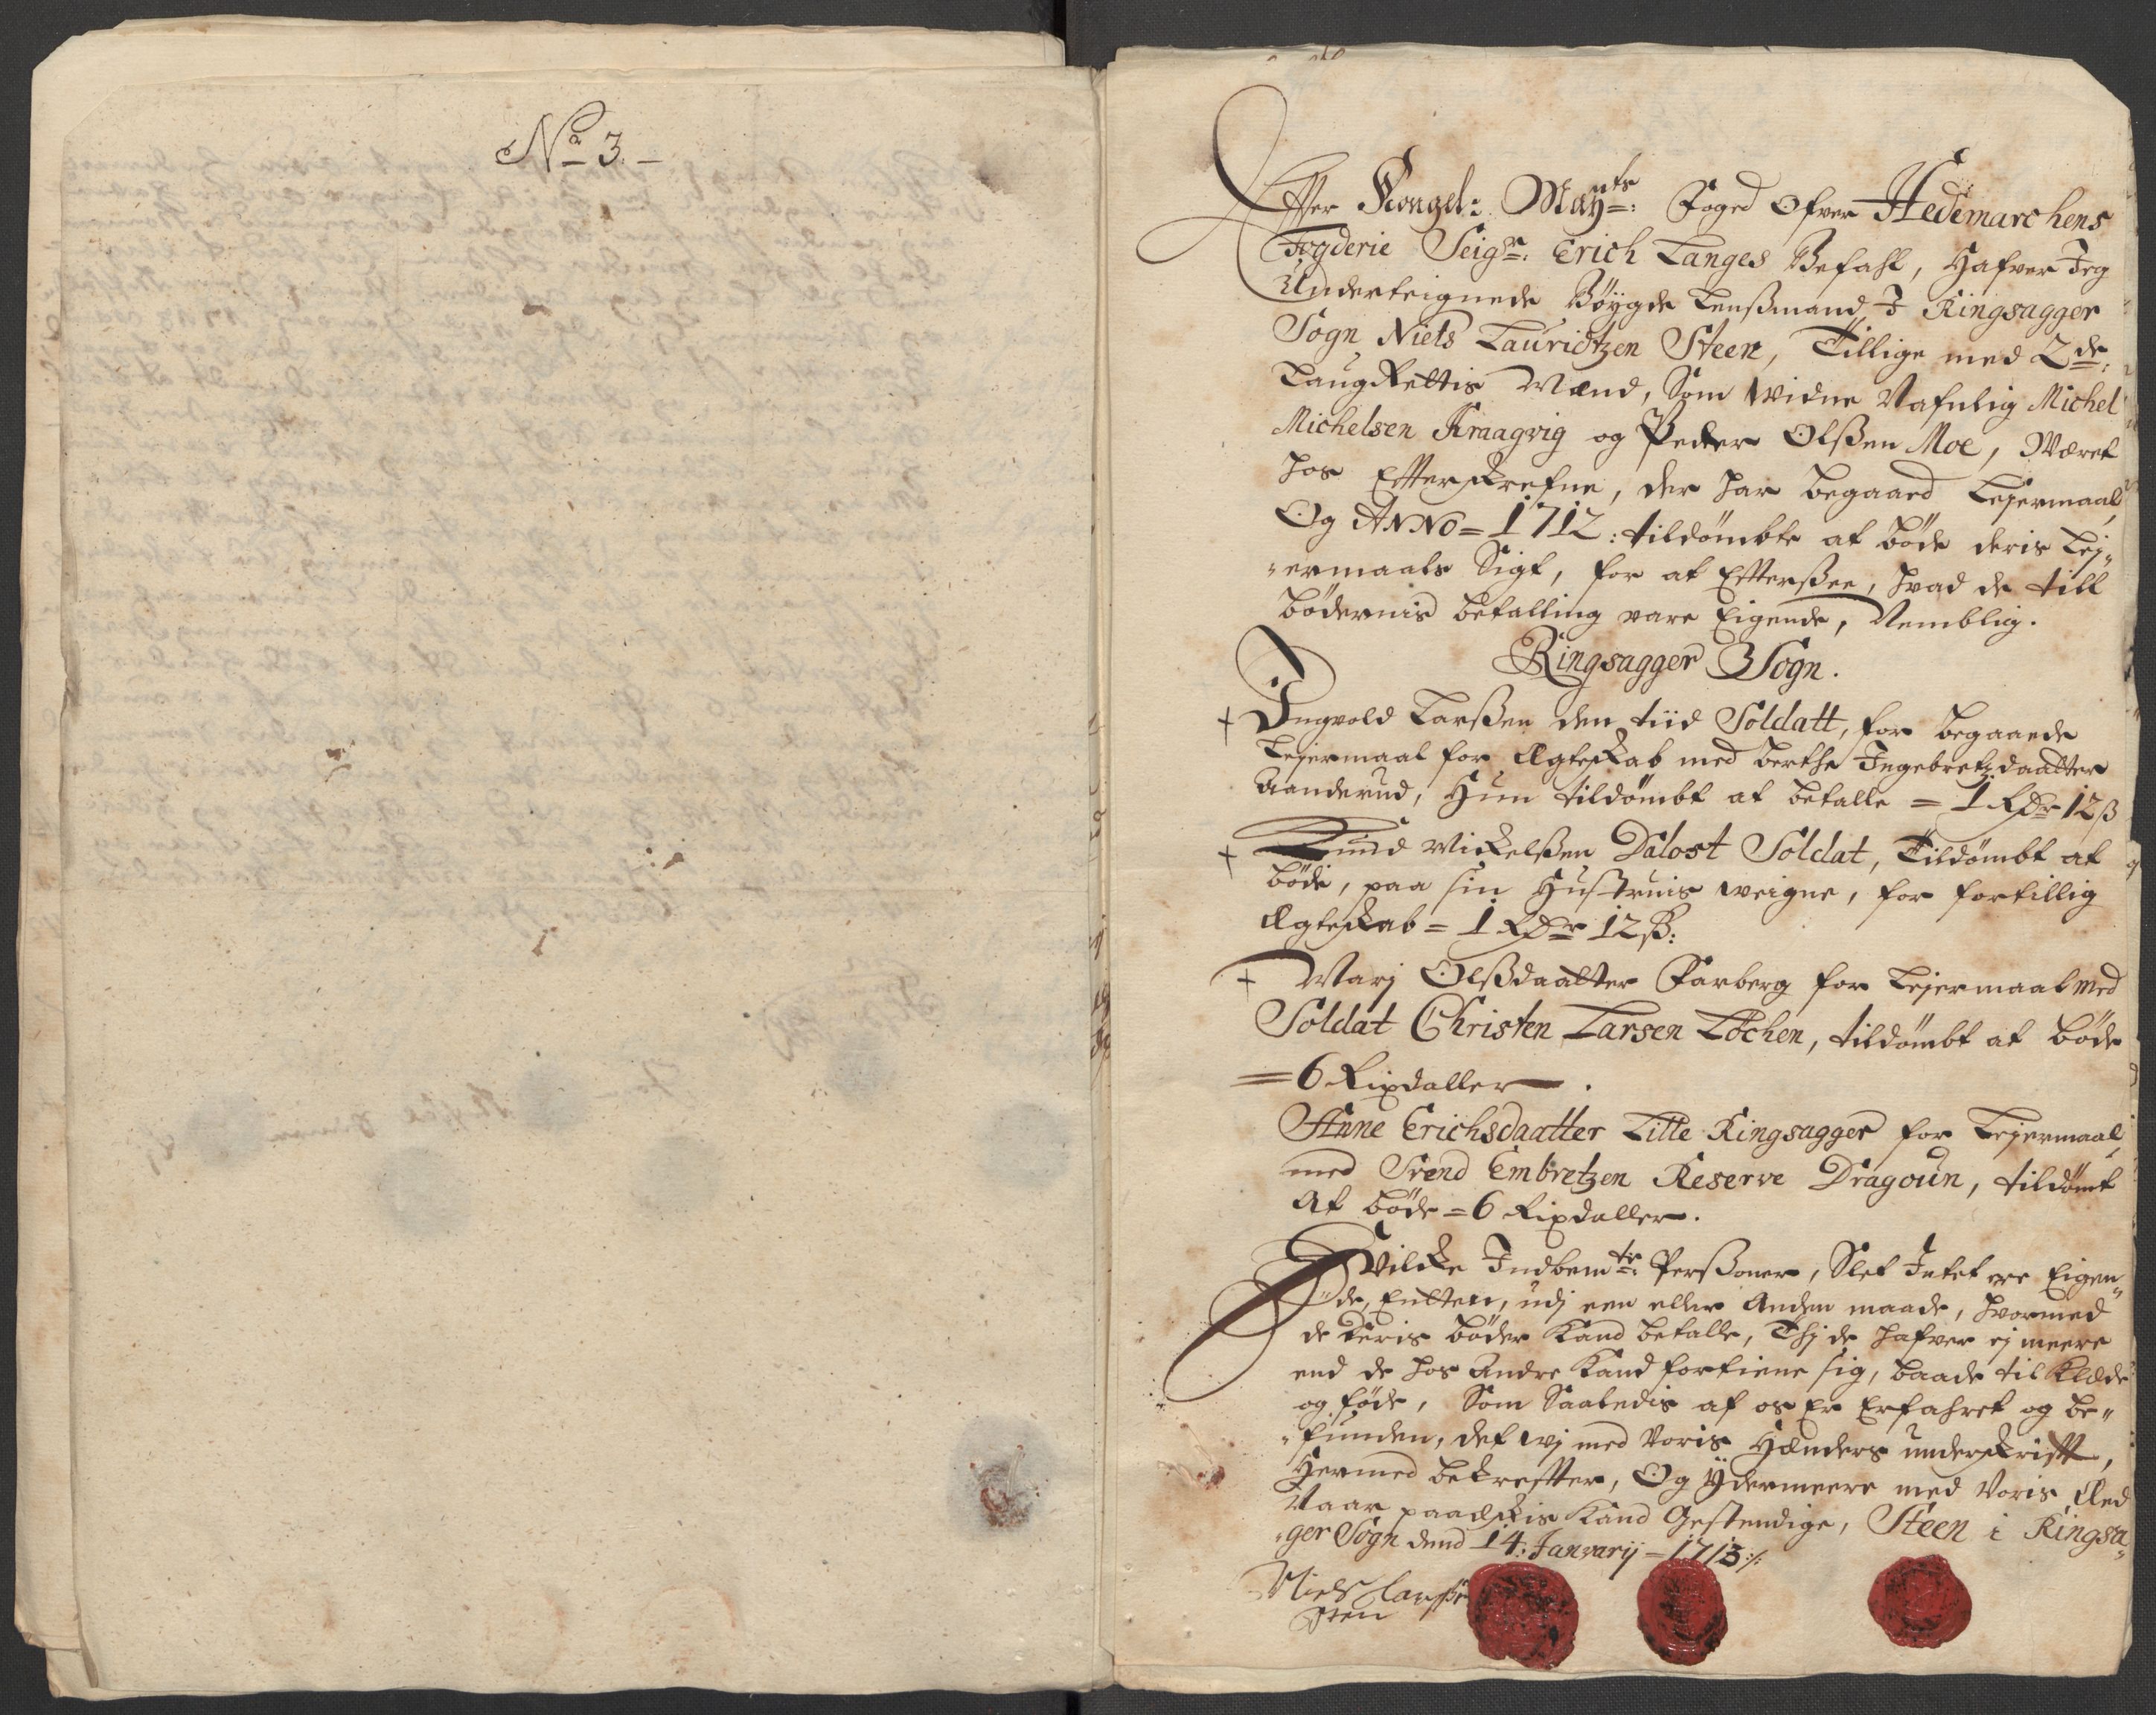 No 3.
Effter Kongel: Mayts: Foged Ofver Hedemarchens
Fogderie Seigr: Erich Langes Befahl, Hafver Jeg
Underteignede Böygde Lensßmand, I Ringsagger
Sogn Niels Lauridtzen Steen, Tillige med 2de:
Laugrettis Mænd, Som Widne Nafnlig Michel
Michelsen Kraagvig og Peder Olßen Moe, Wæret
hos Effterskrefne, der har begaaed Lejermaal,
Og Anno = 1712: tildömbte at böde deris Lej-
-ermaals Sigt, for at Effterßee, hvad de till
bödernis betalling vare Eigende, Nemblig.
Ringsagger Sogn.
+ Ingvold Larßen den tiid Soldatt, for begaaede
Lejermaal for Ægteskab med Berthe Ingebretzdaatter
Aanderud, Hun tildömbt at betalle = 1 Rdr 12 ß
+ Knud Mickelßen Dalost Soldat, Tildömbt at
böde, paa sin Hustruis weigne, for fortillig
Ægteskab = 1 Rdr 12 ß:
+ Marj Olßdaatter Farberg for Lejermaal med
Soldat Christen Larsen Löchen, tildömbt at böde
= 6 Rixdaller.
Anne Erichsdaatter Lille Ringsagger for Lejermaal,
med Svend Embretzen Reserve Dragoun, tildömt
At böde = 6 Rixdaller.
Hvilcke Indbemte: Perßoner, Slet Intet ere Eigen-
-de, Entten, udj een eller Anden maade, hvormed
de deris böder Kand betalle, Thj de hafver ej meere
end de hos Andre Kand fortiene sig, baade til Klæde
og föde, Som Saaledis af os Er Erfahret og be-
-funden, det wj med Voris Hænders underskrifft,
Hermed bekreffter, Og Ydermeere med Voris Æed
Naar paaæskis Kand Gestendige, Steen i Ringsa-
-ger Sogn dend 14: Janvarij = 1713 :/:
Niels Laurßen
Steen